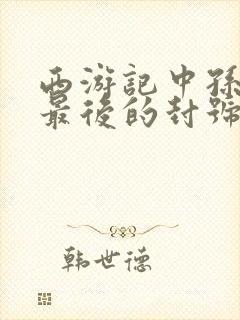 西游記中孫
最後的封號
韩世德